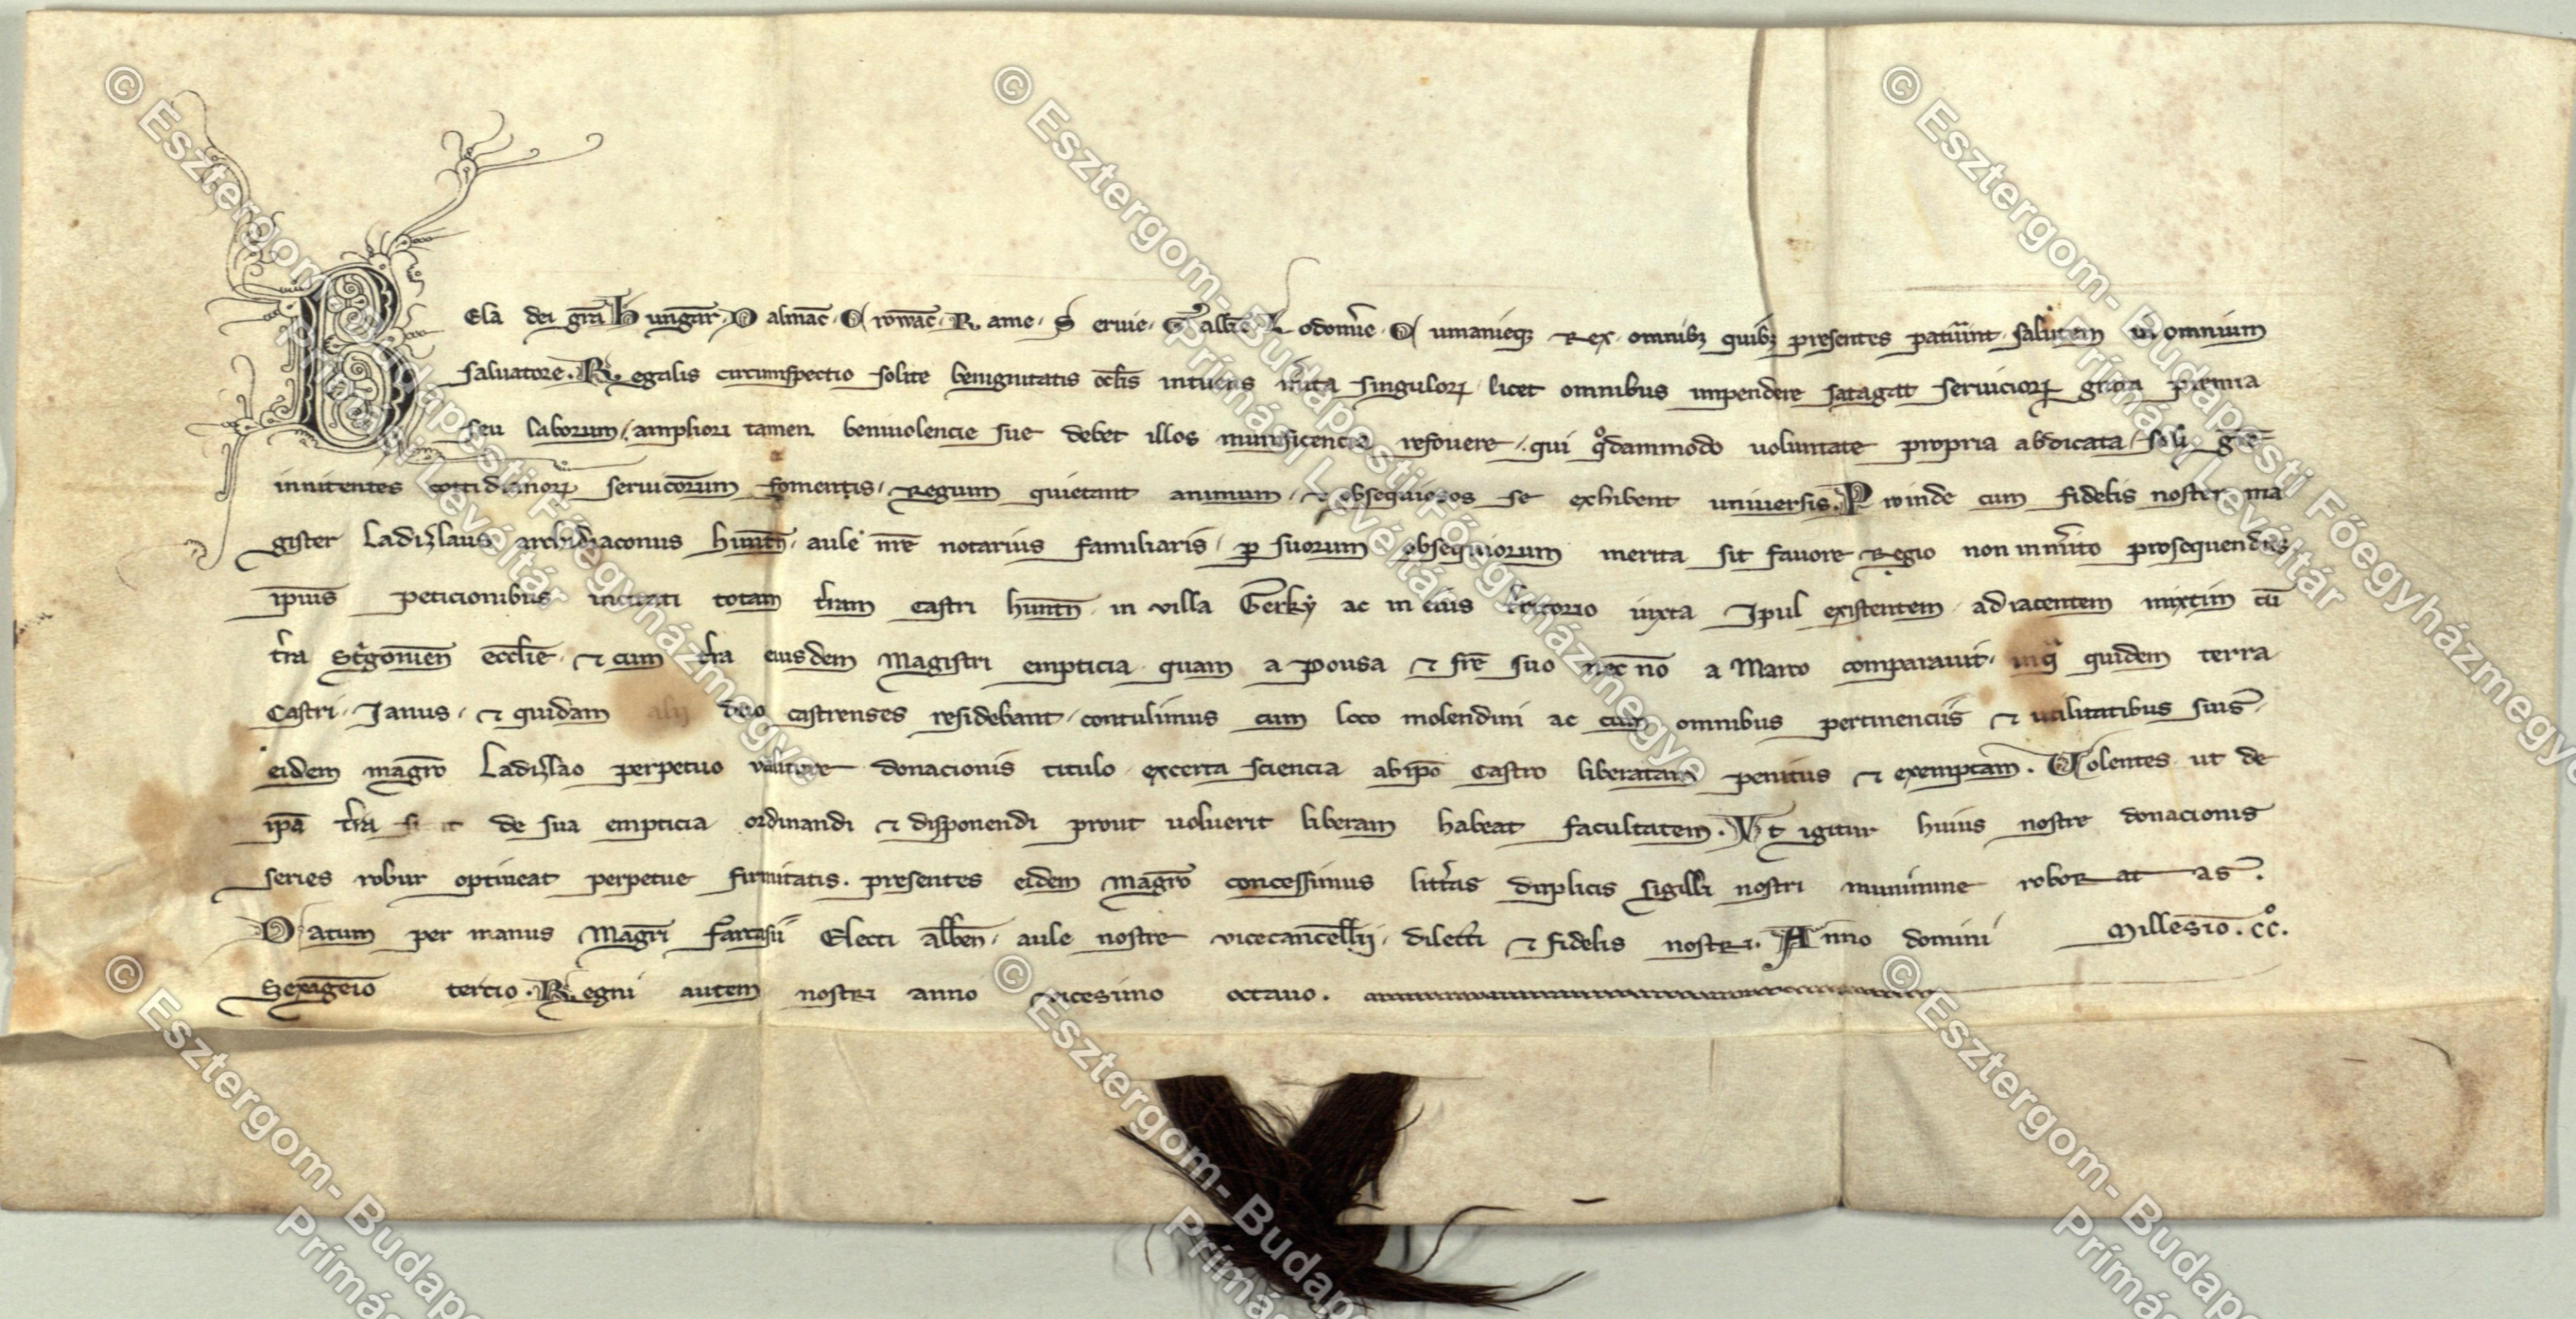 Bela dei gr̄a Hungar̄. Dalmac̄. Crowac̄. Rame. Seruie. Gallic̄. Lodom̄ie. Cumanieq; Rex omnib; quib; presentes patūint salutem in omnium
saluatore. Regalis circumspectio solite benignitatis oc̄lis intuens m̄ita singulorꝝ licet omnibus impendere satagat seruiciorꝝ grata premia
seu laborum, ampliori tamen beniuolencie sue debet illos munificencia refouere, qui qͦdammodo uoluntate propria abdicata, soli gr̄e
innitentes cottidianorꝝ seruicōrum fomentis, Regum quietant animum, ⁊ obsequiosos se exhibent uniuersis. Proinde cum fidelis noster ma
gister Ladizlaus archidiaconus Hunt̄n. aule nr̄e notarius familiaris, ꝑ suorum obsequiorum merita sit fauore Regio non inm̄ito prosequendus
ip̄ius peticionibus incitati totam t̄ram castri hunt̄n in villa Gerky ac in eius t̄ritorio iuxta Ipul existentem, adiacentem mixtim cū
t̄ra St̄goniēn ecc̄lie ⁊ cum t̄ra eiusdem Magistri empticia quam a Pousa ⁊ fr̄e suo nec nō a Marto comparauit, in qͣ quidem terra
Castri, Ianus, ⁊ quidam alij duo castrenses residebant, contulimus cum loco molendini ac cum omnibus pertinenciis ⁊ utilitatibus suis,
eidem magr̄o Ladizlao perpetuo valiture donacionis titulo excerta sciencia ab ip̄o Castro liberatam penitus ⁊ exemptam. Volentes ut de
ip̄a t̄ra sicut de sua empticia ordinandi ⁊ disponendi prout uoluerit liberam habeat facultatem. Vt igitur huius nostre donacionis
series robur optineat perpetue firmitatis. presentes eidem magr̄o concessimus litt̄as duplicis sigilli nostri munimine roboratas.
Datum per manus Magr̄i Farcasii Electi alben̄. aule nostre vicecancell̄ij. dilecti ⁊ fidelis nostri. Anno domini Millesīo. cͨͦ.
Sexagēio tercio. Regni autem nostri anno vicesimo octauo.
© Esztergom-Budapesti Főegyházmegye
Prímási Levéltár